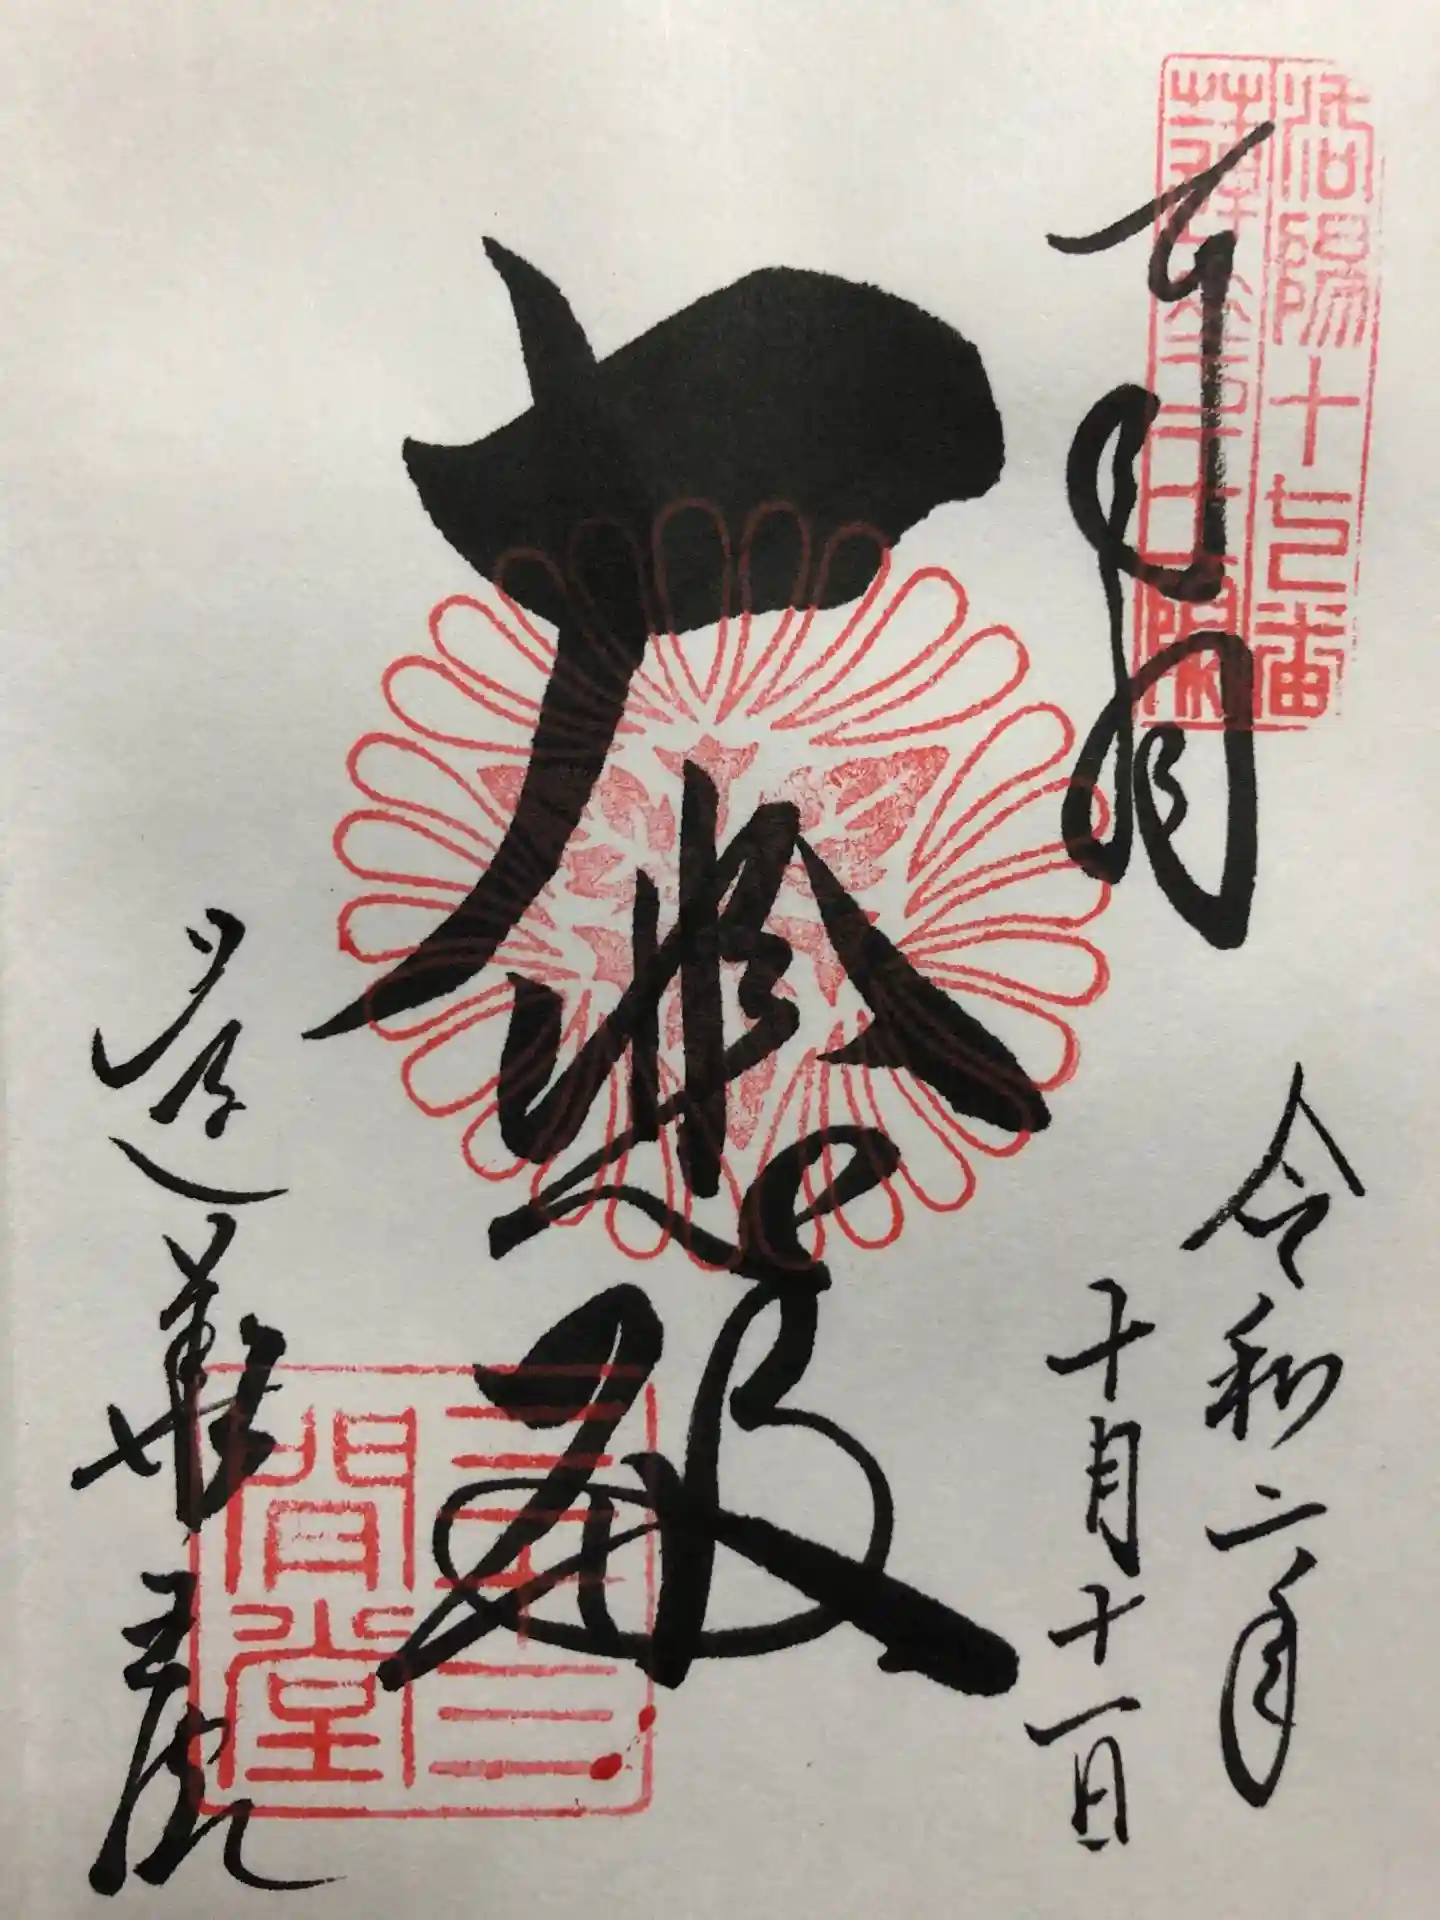 洛陽十七番
蓮華王院
奉拝
令和二年
十月十一日
大悲殿
蓮華王院
三十三
間堂